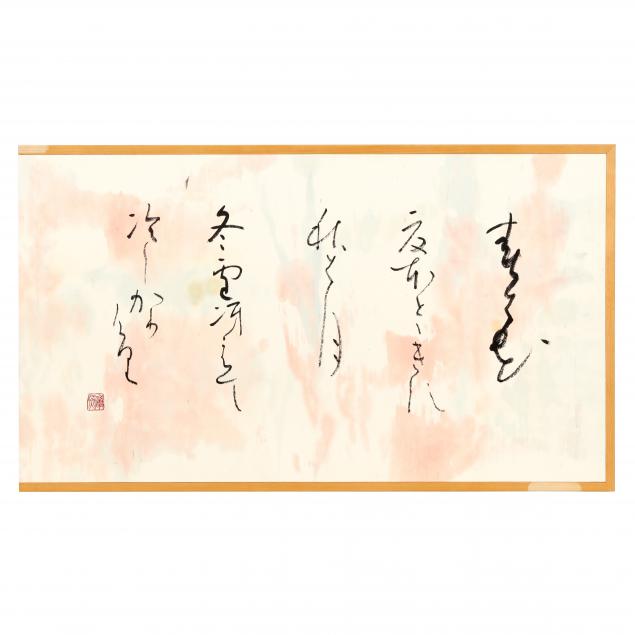 春は花
夏ほとゝきす
秋は月
冬雪冴えて
冷しかり
けり